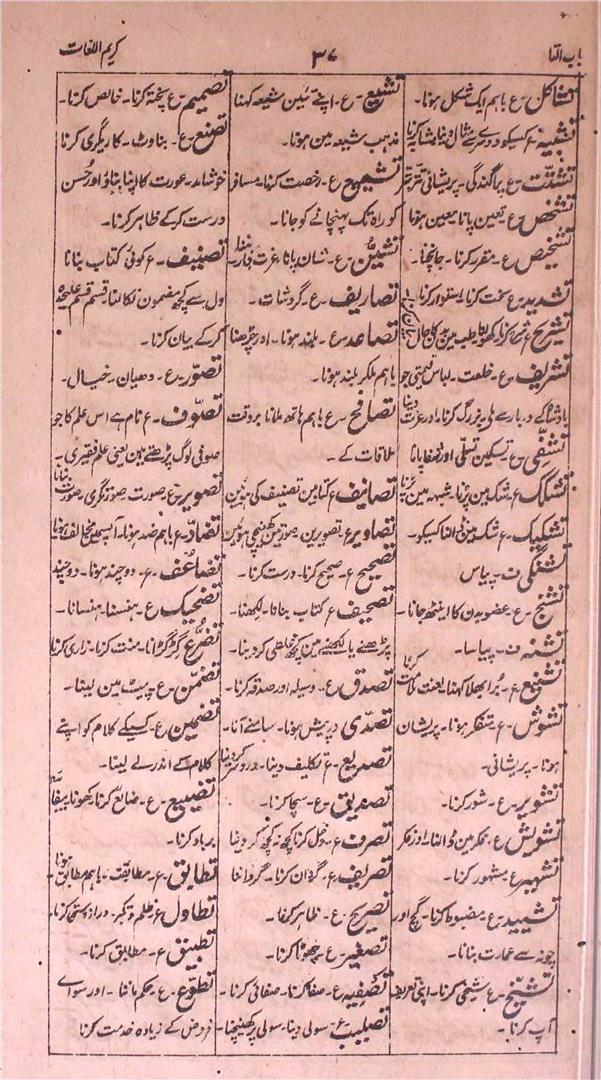 باب التا
۳۷
کریم اللغات
تشاکل۔ ع باہم ایک شکل ہونا۔
تشبیہ۔ ع کسیکو دوسرے سے مثال دینا مشابہ کرنا
تشتّت۔ ع پراگندگی۔ پریشانی
تشخص۔ ع تعین پانا۔ معین ہونا
تشخیص ع۔ مقرر کرنا۔ جانچنا۔
تشدید۔ ع سخت کرنا۔ استوار کرنا
تشریح ع
تشریف۔ ع۔ خلعت۔ لباس قیمتی جو
بادشاہ کے دربار سے ملے بزرگ کرنا۔ اور عزت دینا
تشفّی۔ ع۔ تسکین تسلی اور شفا پانا
تشکک ع۔ شک مین پڑنا۔ شبہہ مین پڑنا
تشکیک۔ ع۔ شک مین ڈالنا کسیکو۔
تشنگی ف۔ پیاس
تشنج۔ ع۔ عضو بدن کا اینٹھ جانا۔
تشنہ ف۔ پیاسا۔
تشنیع ع۔ بُرا بھلا کہنا۔ لعنت ملامت کرنا
تشوش۔ ع۔ متفکر ہونا۔ پریشان
ہونا۔ پریشانی۔
تشویر۔ ع۔ شور کرنا۔
تشویش ع۔ فکر مین ڈالنا۔ اور فکر
تشہیر ع مشہور کرنا۔
تشیید۔ ع۔ مضبوط کرنا۔ گچ اور
چونہ سے عمارت بنانا۔
تشیّخ۔ ع شیخی کرنا۔ اپنی تعریف
آپ کرنا۔
تشیّع۔ ع۔ اپنے تئین شیعہ کہنا
مذہب شیعہ مین ہونا۔
تشییع ع۔ رخصت کرنا۔ مسافر
کو راہ تک پہنچانے کو جانا۔
تشیّن۔ ع۔ نشان پانا عزت
تصاریف۔ ع۔ گردشات۔
تصاعد۔ ع۔ بلند ہونا۔ اوپر چڑھنا
باہم ملکر بلند ہونا۔
تصافح۔ ع باہم ہاتھ ملانا بروقت
ملاقات کے۔
تصانیف۔ ع کتابین تصنیف کی ہوئین
تصاویر ع۔ تصویرین۔ صورتین کھینچی ہوئین
تصحیح ع۔ صحیح کرنا۔ درست کرنا۔
تصحیف ع کتاب بنانا۔ لکھنا۔
پڑھنے یا لکھنے مین کچھ غلطی کر دینا۔
تصدق ع۔ وسیلہ اور صدقہ کرنا۔
تصدّی درپیش ہونا۔ سامنے آنا۔
تصدیع۔ ع تکلیف دینا۔ درد سر دینا
تصدیق۔ ع۔ سچا کرنا۔
تصرف ع۔ دخل کرنا کچھ نہ کچھ کر دینا
تصریف ع۔ گردان کرنا۔ گرداننا
تصریح۔ ع۔ ظاہر کرنا۔
تصغیر۔ ع۔ چھوٹا کرنا۔
تصفیہ ع۔ صفا کرنا۔ صفائی کرنا۔
تصلیب۔ ع۔ سولی دینا۔ سولی پر کھینچنا۔
تصمیم۔ ع پختہ کرنا۔ خالص کرنا۔
تصنّع۔ ع۔ بناوٹ۔ کاریگری کرنا
خوشامد۔ عورت کا اپنا بناؤ اور حُسن
درست کرکے ظاہر کرنا۔
تصنیف۔ ع کوئی کتاب بنانا
دل سے کچھ مضمون نکالنا۔ قسم قسم علیحدہ
کرکے بیان کرنا۔
تصوّر۔ ع۔ دھیان۔ خیال۔
تصوّف۔ ع نام ہے اس علم کا جو
صوفی لوگ پڑھتے ہین یعنی علم فقیری۔
تصویر۔ ع۔ صورت۔ صورتگری۔ صورت بنانا
تضادّ۔ ع باہم ضد ہونا۔ آپسمین مخالف ہونا
تضاعُف۔ ع۔ دوچند ہونا۔ دوچند
تضحیک ع۔ ہنسنا۔ ہنسانا۔
تضرّع ع گڑگڑانا۔ منت کرنا۔ زاری کرنا
تضمّن۔ ع۔ پیٹ مین لینا۔
تضمین ع۔ کسیکے کلام کو اپنے
کلام کے اندر لے لینا۔
تضییع۔ ع۔ ضائع کرنا۔ کھونا۔ بیفائدہ
برباد کرنا۔
تطابق۔ ع۔ مطابقت۔ باہم مطابق ہونا
تطاول ع۔ ظلم و تکبر۔ درازدستی کرنا۔
تطبیق ع۔ مطابق کرنا۔
تطوّع۔ ع۔ حکم ماننا۔ اور سوائے
فرض کے زیادہ خدمت کرنا